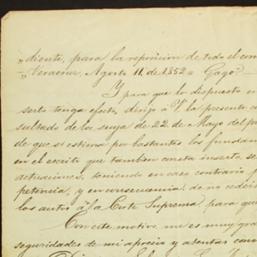 „diente, para la reposicion de todo el com
„Veracruz, Agosto 11, de 1852 = Gago"
Y para que lo dispuesto en
serto tenga efecto, dirijo á V. la presente co
sultado de los suya de 22 de Mayo del p
de que si estima por bastantes los fundam
en el escrito que tambien consta inserto se
actuaciones, teniendo en caso contrario p
petencia, y en consecuencia de no ceder
los autos á la Corte Suprema, para que
Con este motivo me es muy gra
seguridades de mi aprecio y atenta con